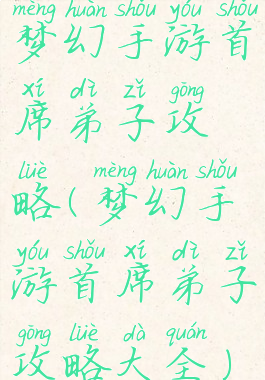 mèng huàn shǒu yóu shǒu
梦幻手游首
xí dì zǐ gōng
席弟子攻
lüè mèng huàn shǒu
略(梦幻手
yóu shǒu xí dì zǐ
游首席弟子
gōng lüè dà quán
攻略大全)